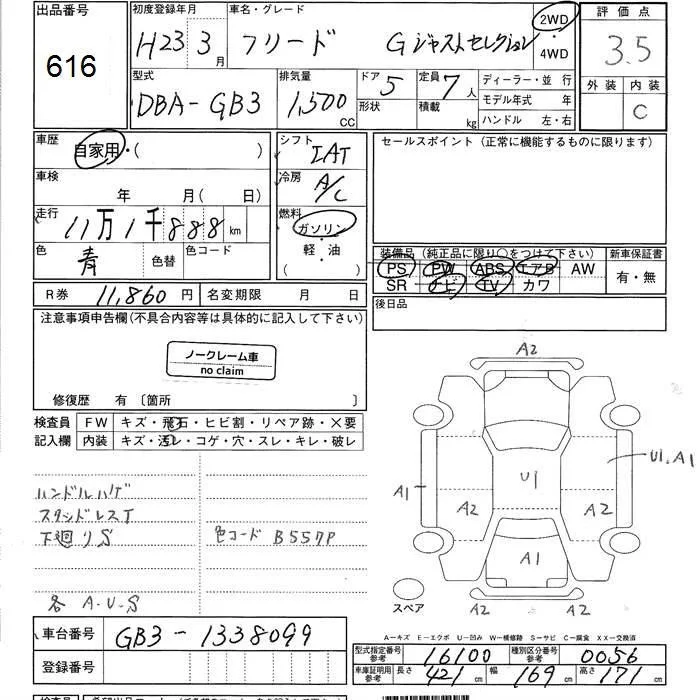 出品番号
616
初度登録年月
H23 3月
車名・グレード
フリード Gジャストセレクション
2WD
4WD
評価点
3.5
外装 内装
C
型式
DBA-GB3
排気量
1,500 CC
ドア 5
形状
定員 7人
積載 kg
ディーラー・並行
モデル年式 年
ハンドル 左・右
車歴
自家用・( )
車検
年 月(日)
走行
11万1千888km
色
青
色替
色コード
シフト
IAT
冷房
A/C
燃料
ガソリン
軽・油
( )
セールスポイント(正常に機能するものに限ります)
装備品(純正品に限り○をつけて下さい)
PS PW ABS エアB AW
SR ナビ TV カワ
新車保証書
有・無
後日品
R券 11,860円
名変期限 月 日
注意事項申告欄(不具合内容等は具体的に記入して下さい)
ノークレーム車
no claim
修復歴 有〔箇所 〕
検査員
記入欄
FW キズ・飛石・ヒビ割・リペア跡・×要
内装 キズ・汚レ・コゲ・穴・スレ・キレ・破レ
ハンドルハゲ
スタッドレスT
下廻りS
色コード B557P
各 A・U・S
A2
U1.A1
A1
A2
U1
A2
A1
A2 A2
スペア
車台番号 GB3-1338099
登録番号
A-キズ E-エクボ U-凹み W-補修跡 S-サビ C-腐食 XX-交換済
型式指定番号
参考
16100
種別区分番号
参考
0056
車庫証明用
参考
長さ 421cm 幅 169cm 高さ 171cm